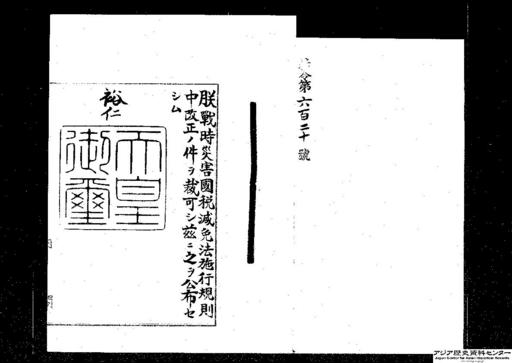 令第六百二十號
朕戰時災害國税減免法施行規則
中改正ノ件ヲ裁可シ茲ニ之ヲ公布セ
シム
裕仁
天皇
御璽
アジア歴史資料センター
Japan Center for Asian Historical Records